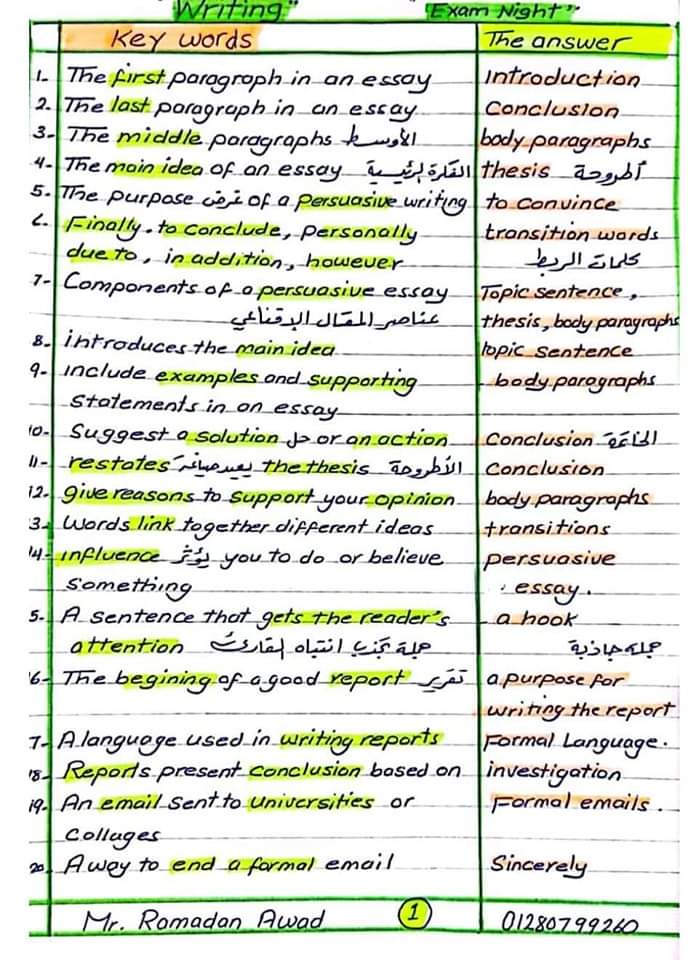 Writing" "Exam Night"
Key words The answer
1- The first paragraph in an essay introduction
2- The last paragraph in an essay Conclusion
3- The middle paragraphs الأوسط body paragraphs
4- The main idea of an essay الفكرة الرئيسية thesis أطروحة
5- The purpose غرض of a persuasive writing to convince
6- Finally, to conclude, personally transition words
due to, in addition, however كلمات الربط
7- Components of a persuasive essay Topic sentence,
عناصر المقال الإقناعي thesis, body paragraphs
8- introduces the main idea topic sentence
9- include examples and supporting body paragraphs
statements in an essay
10- Suggest a solution حل or an action Conclusion الخاتمة
11- restates يعيد صياغة the thesis الأطروحة Conclusion
12- give reasons to support your opinion body paragraphs
3- words link together different ideas transitions
14- influence يؤثر you to do or believe persuasive
something essay.
5- A sentence that gets the reader's a hook
attention جملة تجذب انتباه القارئ جملة جاذبة
16- The begining of a good report تقرير a purpose for
writing the report
7- A language used in writing reports Formal Language.
18- Reports present conclusion based on investigation
19- An email sent to universities or Formal emails.
Collages
20- A way to end a formal email Sincerely
Mr. Romadan Awad 1 01280799260